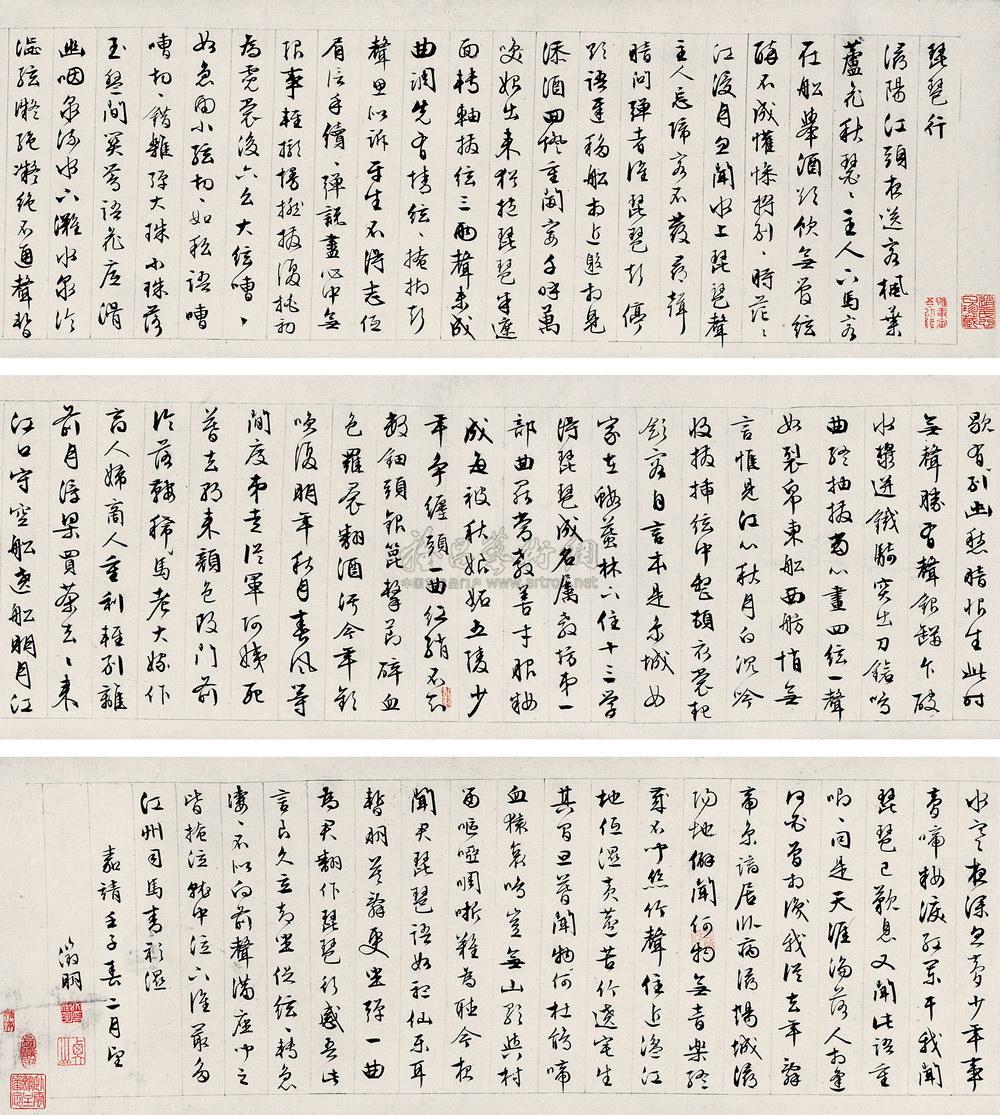 琵琶行
潯陽江頭夜送客楓葉
蘆花秋瑟〻主人下馬客
在船舉酒欲飲無管絃
醉不成懽慘將別〻時茫〻
江浸月忽聞水上琵琶聲
主人忘歸客不發尋聲
暗問彈者誰琵琶聲停
欲語遲移船相近邀相見
添酒回燈重開宴千呼萬
喚始出來猶抱琵琶半遮
面轉軸撥絃三兩聲未成
曲調先有情絃〻掩抑聲
聲思似訴平生不得志低
眉信手續〻彈說盡心中無
限事輕攏慢撚撥復挑初
為霓裳後六么大絃嘈〻
如急雨小絃切〻如私語嘈
嘈切〻錯雜彈大珠小珠落
玉盤間關鶯語花底滑
幽咽泉流水下灘水泉冷
澁絃凝絕凝絕不通聲暫
歇有別幽愁暗恨生此時
無聲勝有聲銀缾乍破
水漿迸鐵騎突出刀鎗鳴
曲終抽撥當心畫四絃一聲
如裂帛東船西舫悄無
言惟見江心秋月白沉吟
收撥插絃中整頓衣裳起
斂容自言本是京城女
家在蝦蟇林下住十三學
得琵琶成名屬教坊第一
部曲罷常教善才服妝
成每被秋娘妬五陵少
年爭纏頭一曲紅綃不知
數鈿頭銀篦擊節碎血
色羅裙翻酒污今年歡
笑復明年秋月春風等
閒度弟走從軍阿姨死
暮去朝來顏色改門前
冷落鞍稀馬老大嫁作
商人婦商人重利輕別離
前月浮梁買茶去〻來
江口守空船遶船明月江
水寒夜深忽夢少年事
夢啼妝淚紅闌干我聞
琵琶已歎息又聞此語重
唧〻同是天涯淪落人相逢
何必曾相識我從去年辭
帝京謫居臥病潯陽城潯
陽地僻聞何物無音樂終
歲不聞絲竹聲住近湓江
地低濕黃蘆苦竹遶宅生
其間旦暮聞物何杜鵑啼
血猿哀鳴豈無山歌與村
笛嘔啞啁哳難為聽今夜
聞君琵琶語如聽仙樂耳
暫明莫辭更坐彈一曲
為君翻作琵琶行感吾此
言良久立却坐促絃〻轉急
凄〻不似向前聲滿座聞之
皆掩泣就中泣下誰最多
江州司馬青衫濕
嘉靖壬子春二月望
徵明